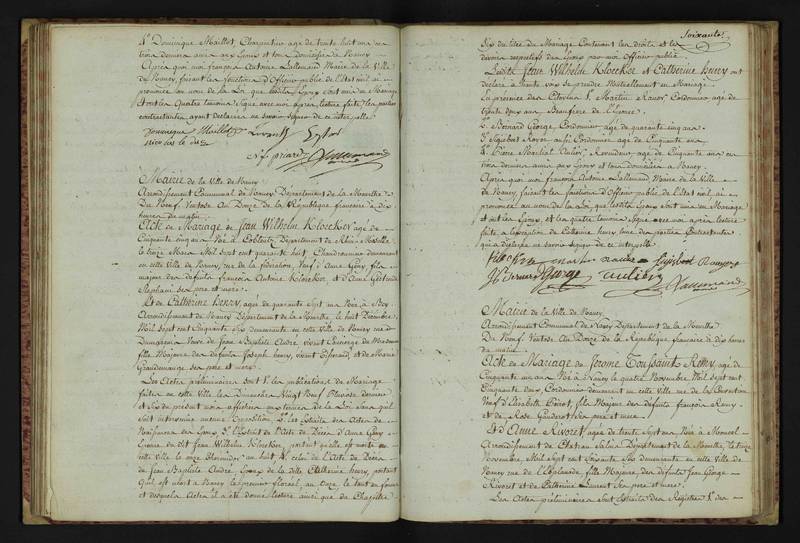 4.º Dominique Maillot, Charpentier agé de trente huit ans
trois derniers amis des Epoux et tous domiciliés à Nancy
Après quoi moi françois Antoine Lallemand Maire de la Ville
de Nancy, faisant les fonctions d'Officier public de l'état civil ai
prononcé au nom de la Loi que lesdits Epoux sont unis en Mariage
et ont les quatre temoins signé avec moi après lecture faite, les parties
contractantes ayant déclaré ne savoir signer de ce interpellés
Dominique Maillot
Lallemand
Mairie de la Ville de Nancy
Arrondissement Communal de Nancy Département de la Meurthe
Du Neuf Ventose An Douze de la République française à dix
heures du matin
Acte de Mariage de Jean Wilhelm Kloecker agé de
Cinquante cinq ans Né à Coblentz Département de Rhin et Moselle
le treize Mars Mil sept cent quarante huit, Chaudronnier demeurant
en cette Ville de Nancy, rue de la fédération, Veuf d'Anne Gény fils
majeur des defunts françois Antoine Kloecker et d'Anne Gertrude
Stephani ses pere et mere.
Et de Catherine henry, agée de quarante sept ans Née à
Arrondissement de Nancy Département de la Meurthe, le huit Décembre
Mil sept cent Cinquante Six demeurante en cette Ville de Nancy rue
Veuve de Jean Baptiste André vivant
fille Majeure des defunts Joseph henry, vivant Tisserand, et de Marie
ses pere et mere.
Les Actes préliminaires sont 1.º les publications de Mariage
faites en cette Ville les Dimanches Vingt Neuf Pluviose dernier
et Six du présent mois affichées aux termes de la Loi sans qu'il
soit intervenu aucune Opposition 2.º les Extraits des Actes de
Naissance des Epoux 3.º l'Extrait de l'Acte de Décès d'Anne Gény
Epouse dudit Jean Wilhelm Kloecker portant qu'elle est morte en
cette ville le onze an huit 4.º celui de l'Acte de Décès
de Jean Baptiste André Epoux de ladite Catherine henry, portant
qu'il est mort à Nancy le premier floréal an Onze, le tout en forme
et desquels Actes il a été donné lecture ainsi que du Chapitre
Soixante
Six du titre du Mariage Contenant les droits et les
devoirs respectifs des Epoux par moi Officier public
Lesdits Jean Wilhelm Kloecker et Catherine henry ont
déclaré à Haute voix se prendre Mutuellement en Mariage
En presence des Citoyens 1.º Martin Cordonnier agé de
trente ans Beaufrere de l'Epouse
2.º Bernard George, Cordonnier agé de quarante cinq ans
3.º aussi Cordonnier agé de Cinquante ans
4.º Pierre Martial agé de Cinquante ans
trois derniers amis des Epoux et tous domiciliés à Nancy
Après quoi moi françois Antoine Lallemand Maire de la Ville
de Nancy, faisant les fonctions d'Officier public de l'état civil ai
prononcé au nom de la Loi, que lesdits Epoux sont unis en Mariage
et ont les Epoux et les quatre temoins signé avec moi après lecture
faite à l'exception de Catherine henry l'une des parties Contractantes
qui a déclaré ne savoir signer de ce interpellée
George
Lallemand
Mairie de la Ville de Nancy
Arrondissement Communal de Nancy Département de la Meurthe
Du Neuf Ventose An Douze de la République française à dix heures
du matin
Acte de Mariage de Jerome Toussaint Remy, agé de
Cinquante un ans Né à Nancy le quatre Novembre Mil sept cent
Cinquante deux Cordonnier demeurant en cette Ville rue de
Veuf d'Elisabeth fils Majeur des defunts françois Remy
et de Rose ses pere et mere.
Et d'Anne Rivoret agée de trente Sept ans Née à Moncel
Arrondissement de Chateau Salins Département de la Meurthe, le treize
Novembre Mil sept cent Soixante Six demeurante en cette Ville de
Nancy rue de l'Esplanade, fille Majeure des defunts Jean George
Rivoret et Catherine Laurent ses pere et mere.
Les Actes préliminaires sont Extraits des Registres 1.º des